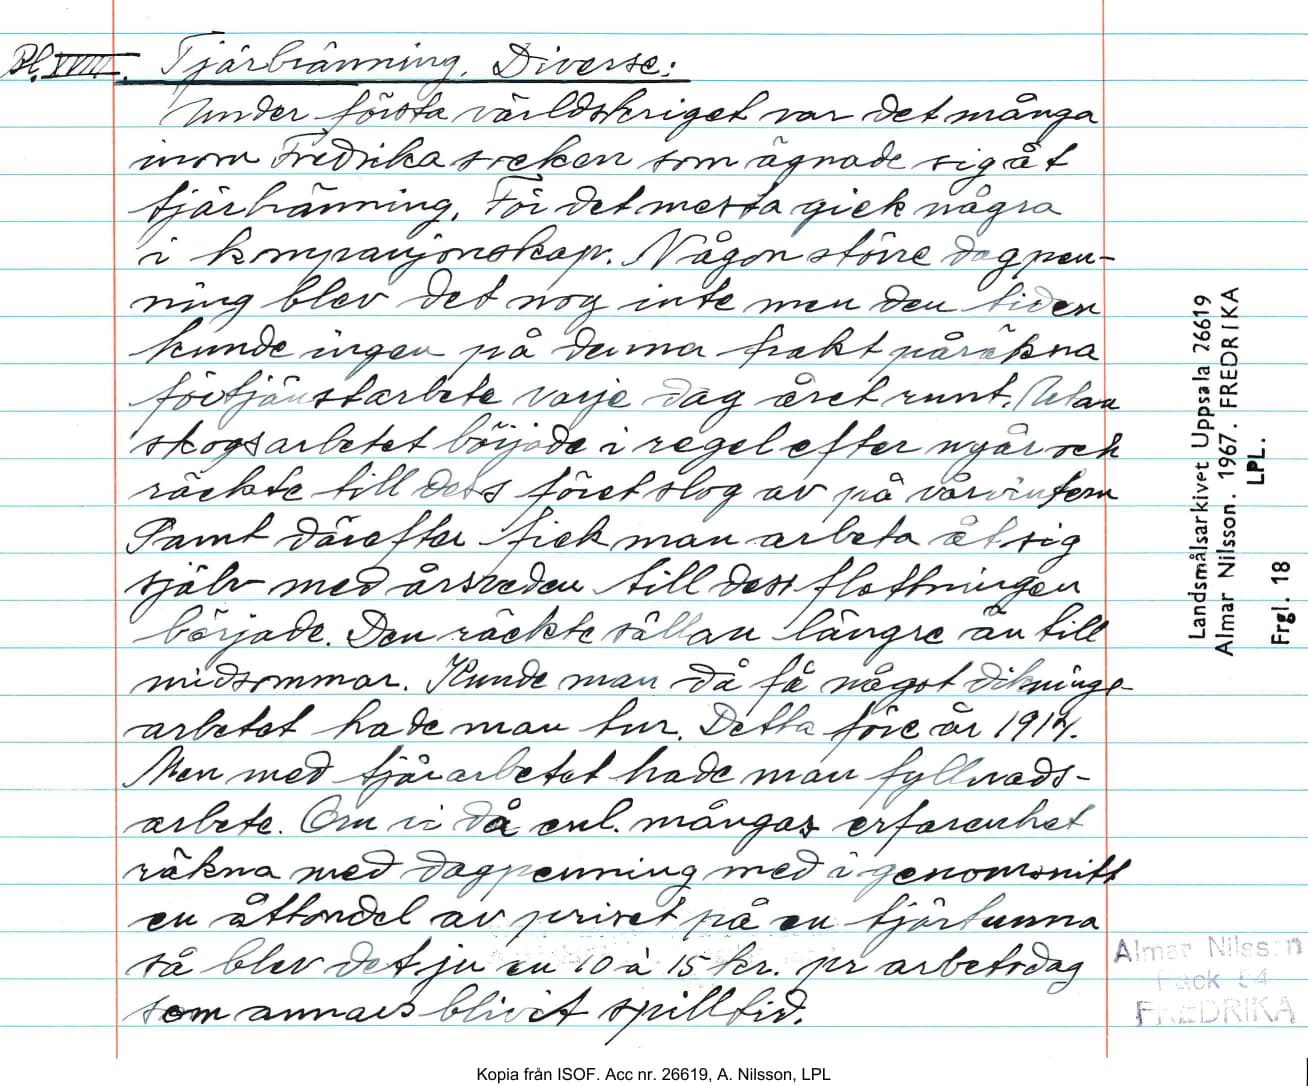 Bl. XVIII. Tjärbränning. Diverse:
Under första världskriget var det många
inom Fredrika socken som ägnade sig åt
tjärbränning. För det mesta gick några
i kompanjonskap. Någon större dagpen-
ning blev det nog inte men den tiden
kunde ingen på denna trakt påräkna
förtjänstarbete varje dag året runt. Utan
skogsarbetet började i regel efter nyår och
räckte till dess föret slog av på vårvintern
Samt därefter fick man arbeta åt sig
själv med årsveden till dess flottningen
började. Den räckte sällan längre än till
midsommar. Kunde man då få något diknings-
arbetet hade man tur. Detta före år 1914.
Men med tjärarbetet hade man fyllnads-
arbete. Om vi då enl. mångas erfarenhet
räkna med dagpenning med i genomsnitt
en åttondel av priset på en tjärtunna
så blev det ju en 10 à 15 kr. pr arbetsdag
som annars blivit spilltid.
Landsmålsarkivet Uppsala 26619
Almar Nilsson. 1967. FREDRIKA
LPL.
Frgl. 18
Almar Nilsson
Fack 54
FREDRIKA
Kopia från ISOF. Acc nr. 26619, A. Nilsson, LPL